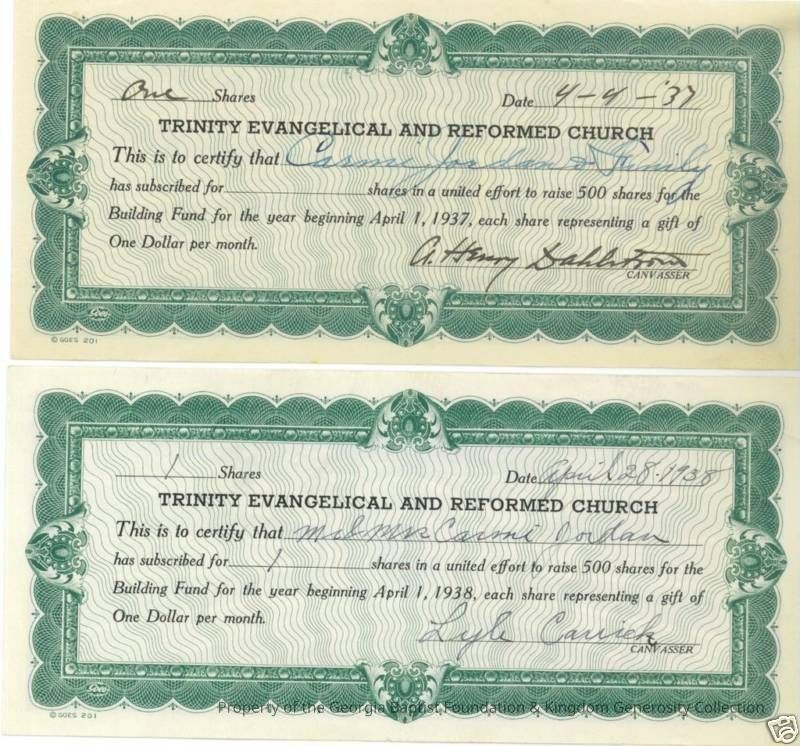 One Shares Date 4-4-'37
TRINITY EVANGELICAL AND REFORMED CHURCH
This is to certify that Carmi Jordan & Family
has subscribed for shares in a united effort to raise 500 shares for the
Building Fund for the year beginning April 1, 1937, each share representing a gift of
One Dollar per month.
A. Henry Dahlstrom
CANVASSER
Goes
© GOES 201
1 Shares Date April 28-1938
TRINITY EVANGELICAL AND REFORMED CHURCH
This is to certify that Mr & Mrs Carmi Jordan
has subscribed for 1 shares in a united effort to raise 500 shares for the
Building Fund for the year beginning April 1, 1938, each share representing a gift of
One Dollar per month.
Lyle Carrick
CANVASSER
Goes
Property of the Georgia Baptist Foundation & Kingdom Generosity Collection
© GOES 201